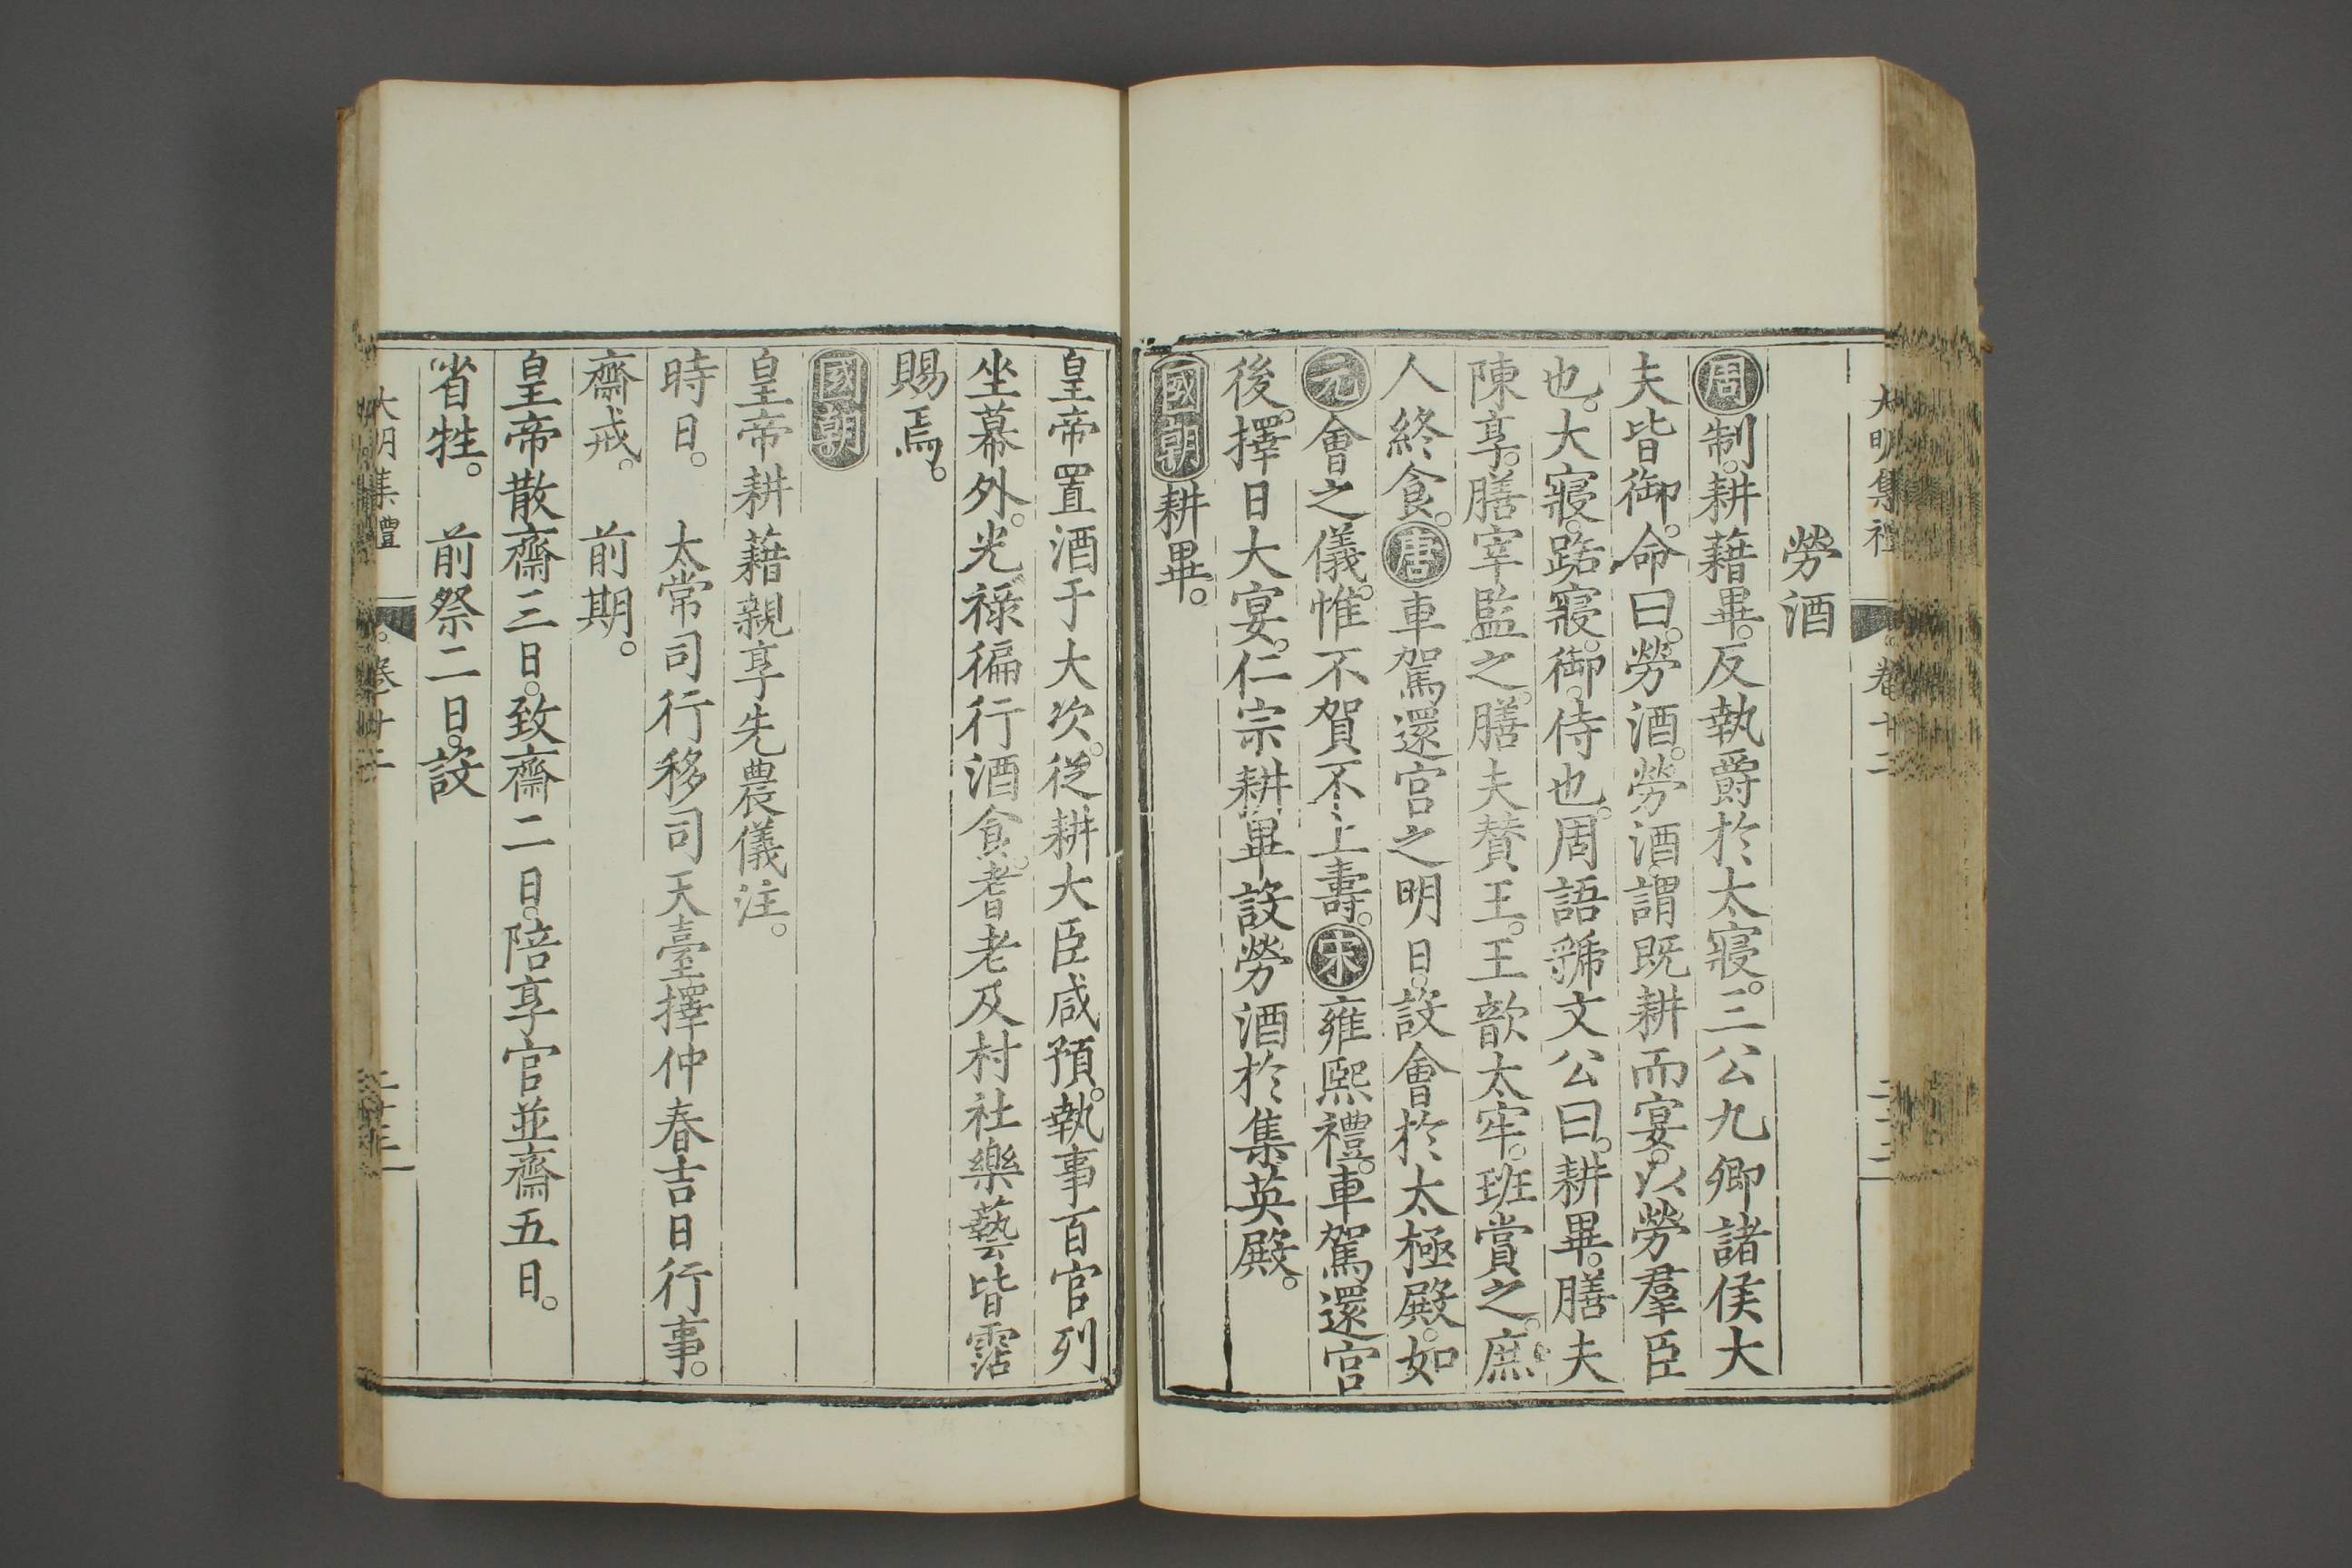 大明集禮 卷廿二
勞酒
周制。耕藉畢。反執爵於太寢。三公九卿諸侯大
夫皆御。命曰。勞酒。勞酒。謂既耕而宴。以勞羣臣
也。大寢。路寢。御。侍也。周語虢文公曰。耕畢。膳夫
陳享。膳宰監之。膳夫贊王。王歆太牢。班嘗之。庶
人終食。唐車駕還宮之明日。設會於太極殿。如
元會之儀。惟不賀不上壽。宋雍熙禮。車駕還宮
後。擇日大宴。仁宗耕畢設勞酒於集英殿。
國朝耕畢。
皇帝置酒于大次。從耕大臣咸預。執事百官列
坐幕外。光祿徧行酒食。耆老及村社樂藝皆霑
賜焉。
國朝
皇帝耕藉親享先農儀注。
時日。 太常司行移司天臺擇仲春吉日行事。
齋戒。 前期。
皇帝散齋三日。致齋二日。陪享官並齋五日。
省牲。 前祭二日。設
大明集禮 卷廿二